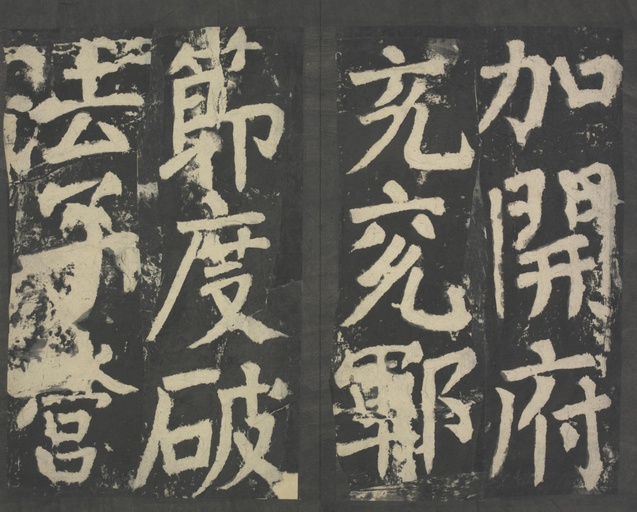 加開府
充兖鄆
節度破
法子營